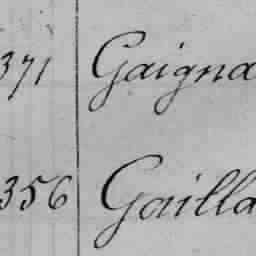 371 Gaigna
356 Gailla